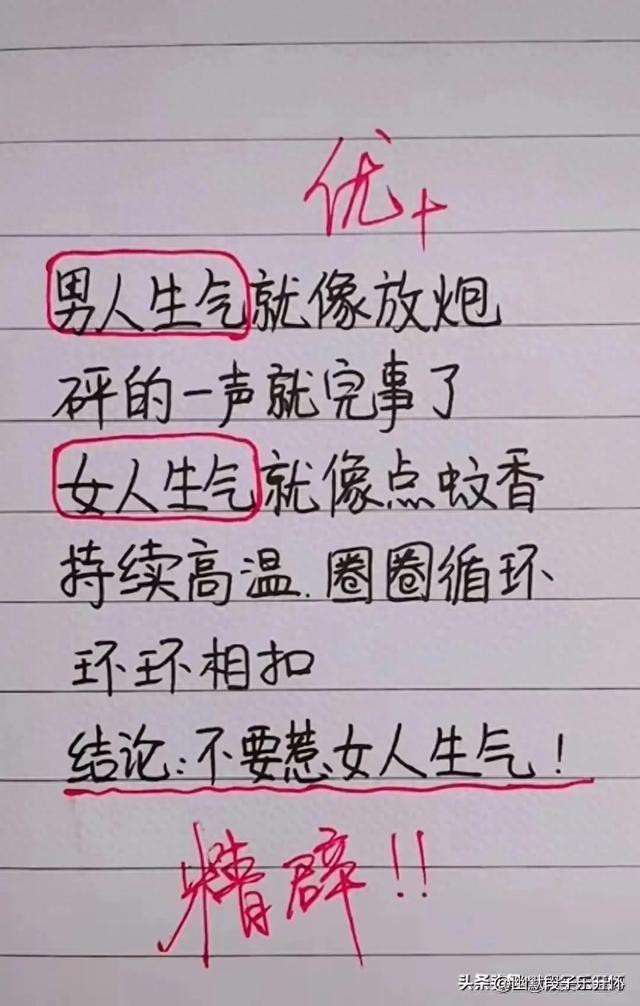 优+
男人生气就像放炮
砰的一声就完事了
女人生气就像点蚊香
持续高温.圈圈循环
环环相扣
结论:不要惹女人生气!
精辟!!
头条
@幽默段子乐开怀